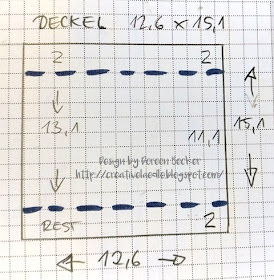 DECKEL 12,6 x 15,1
2 2
13,1
11,1 15,1
Design by Doreen Becker
http://creativelaedle.blogspot.com/
REST 2
12,6